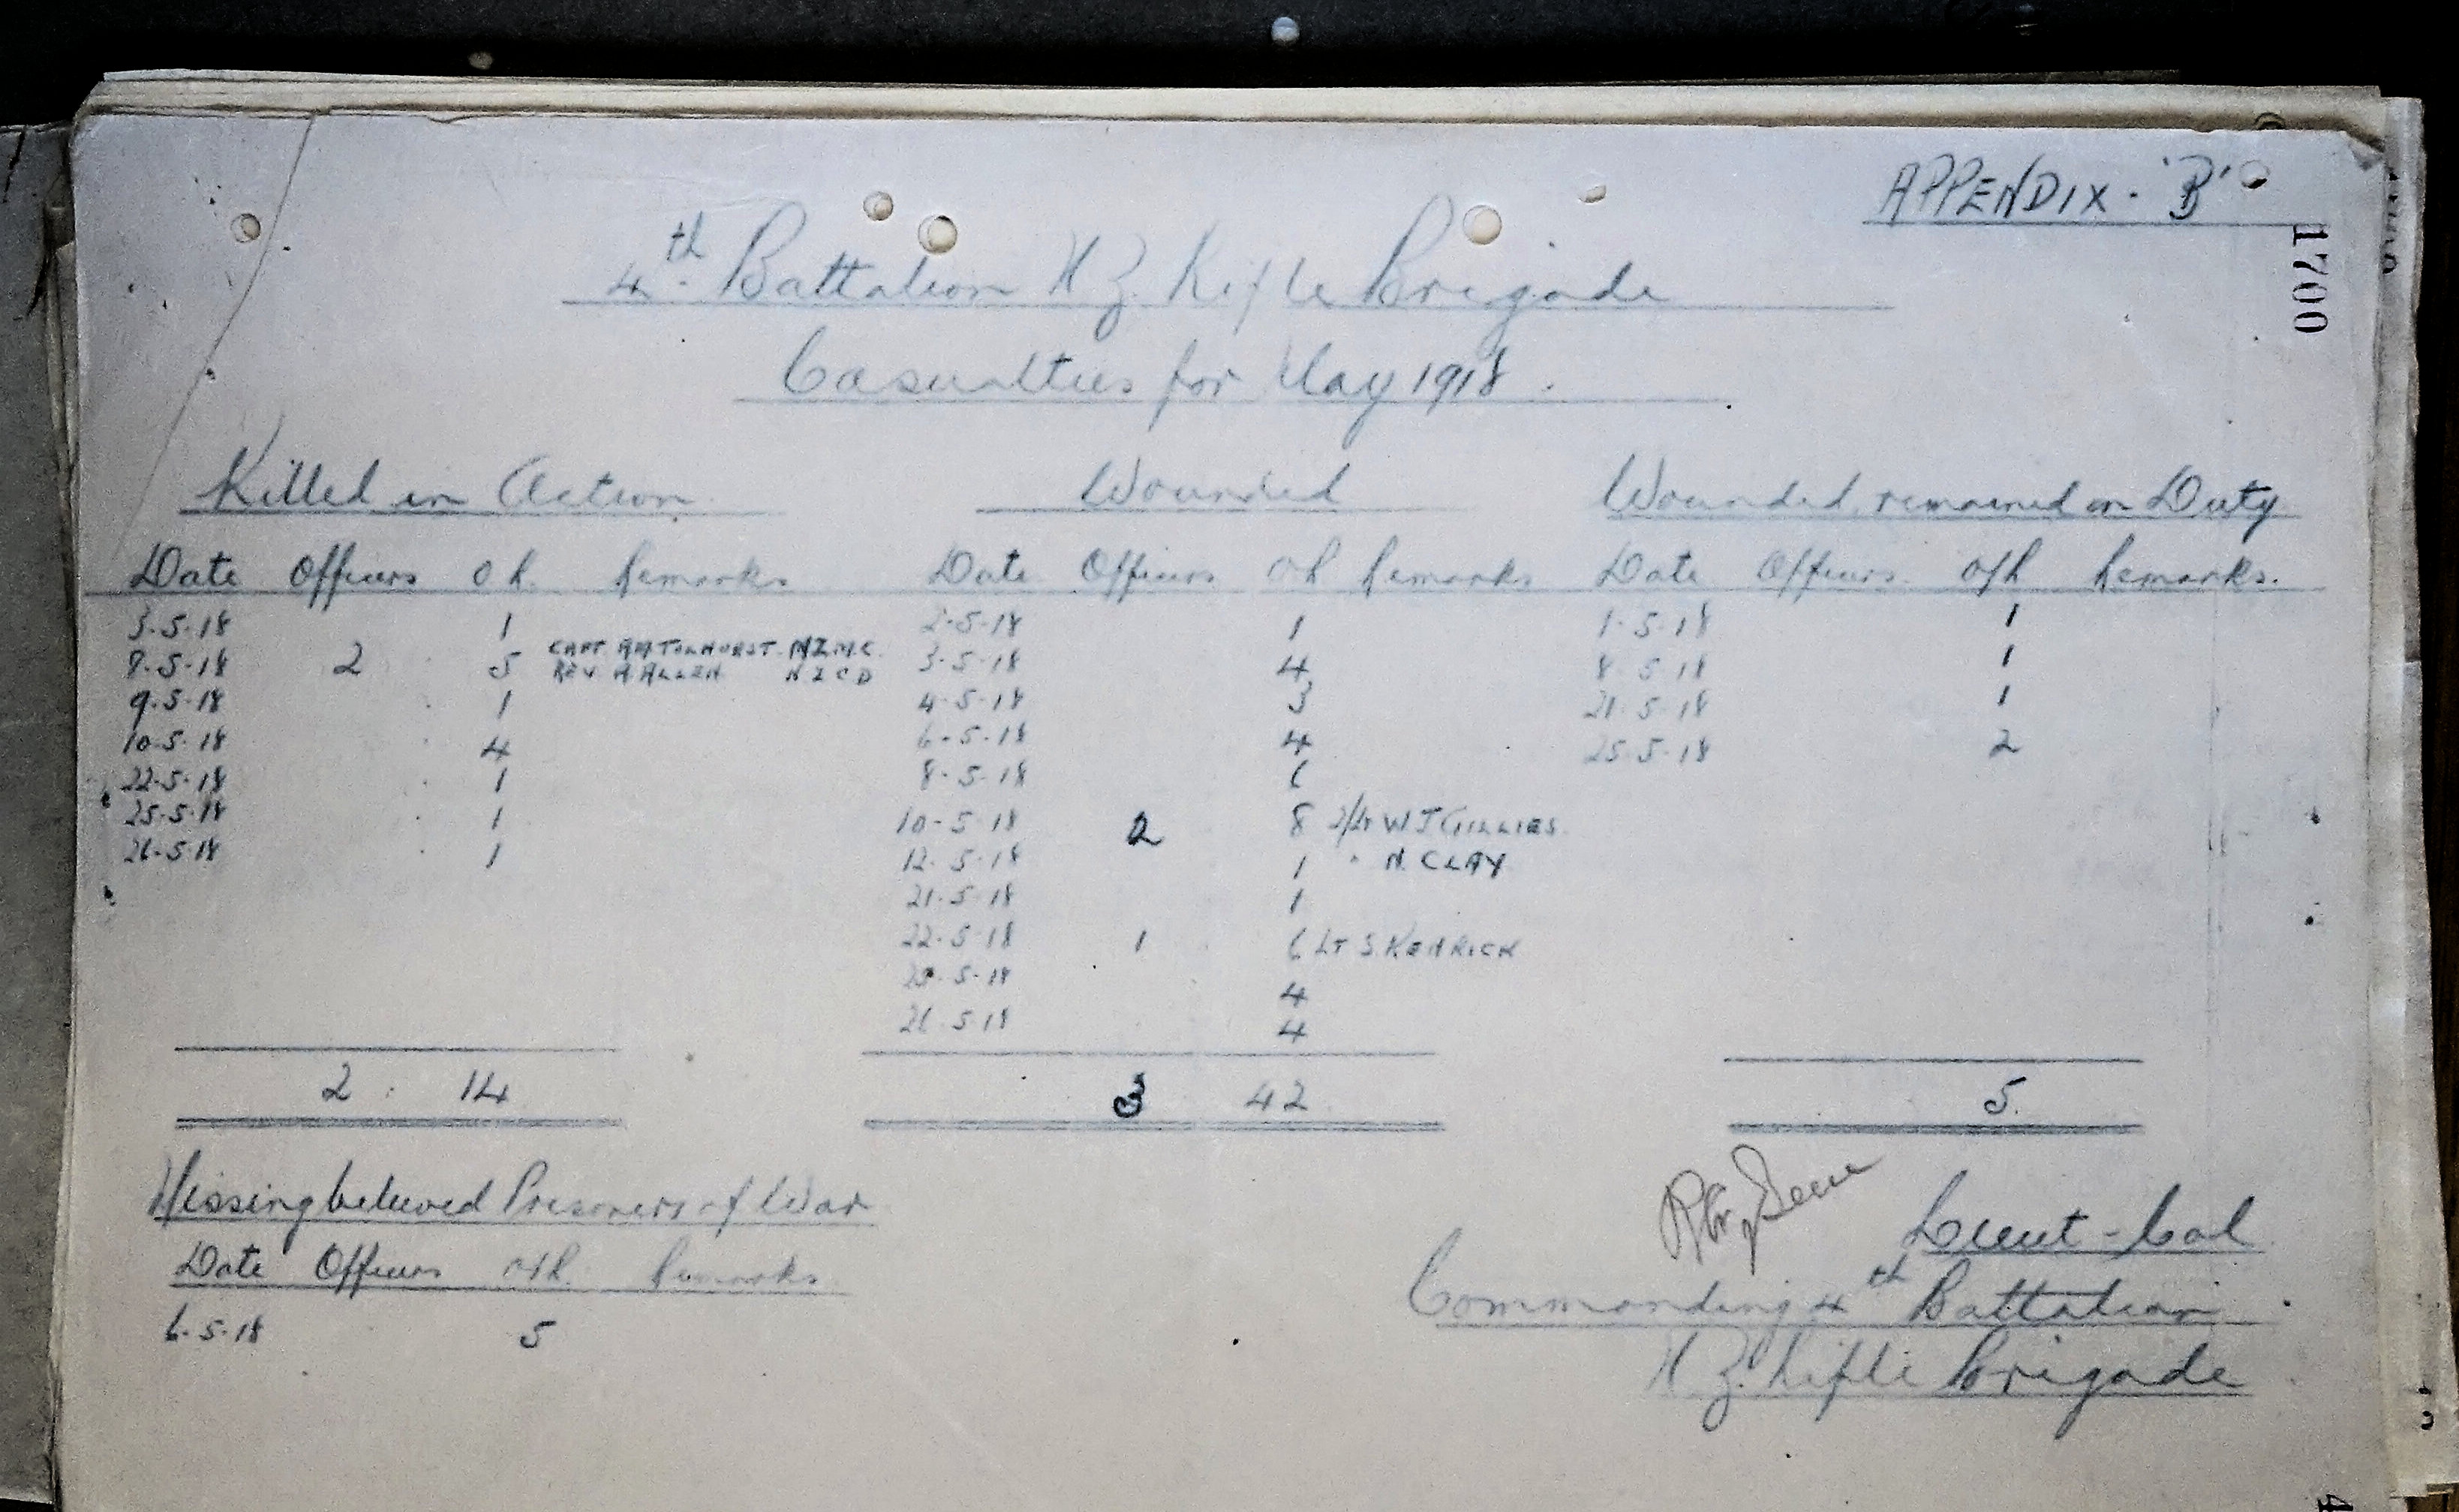 APPENDIX. 'B'
1700
4th Battalion N.Z. Rifle Brigade
Casualties for May 1918.
Killed in Action
Date Officers O.R. Remarks
3.5.18 1
8.5.18 2 5 CAPT. A.M. TOLHURST. N.Z.M.C.
REV A ALLEN N Z C D
9.5.18 1
10.5.18 4
22.5.18 1
25.5.18 1
26.5.18 1
2 : 14
Wounded
Date Officers O/R Remarks
2.5.18 1
3.5.18 4
4.5.18 3
6.5.18 4
8.5.18 6
10-5.18 2 8 2/Lt W J GILLIES
12.5.18 1 " N. CLAY
21.5.18 1
22.5.18 1 6 LT S. KENRICK
25.5.18 4
26.5.18 4
3 42
Wounded, remained on Duty
Date Officers. O/R Remarks.
1.5.18 1
8.5.18 1
21.5.18 1
25.5.18 2
5.
Missing believed Prisoners of War
Date Officers O/R. Remarks
6.5.18 5
Lieut-Col
Commanding 4th Battalion
N.Z. Rifle Brigade